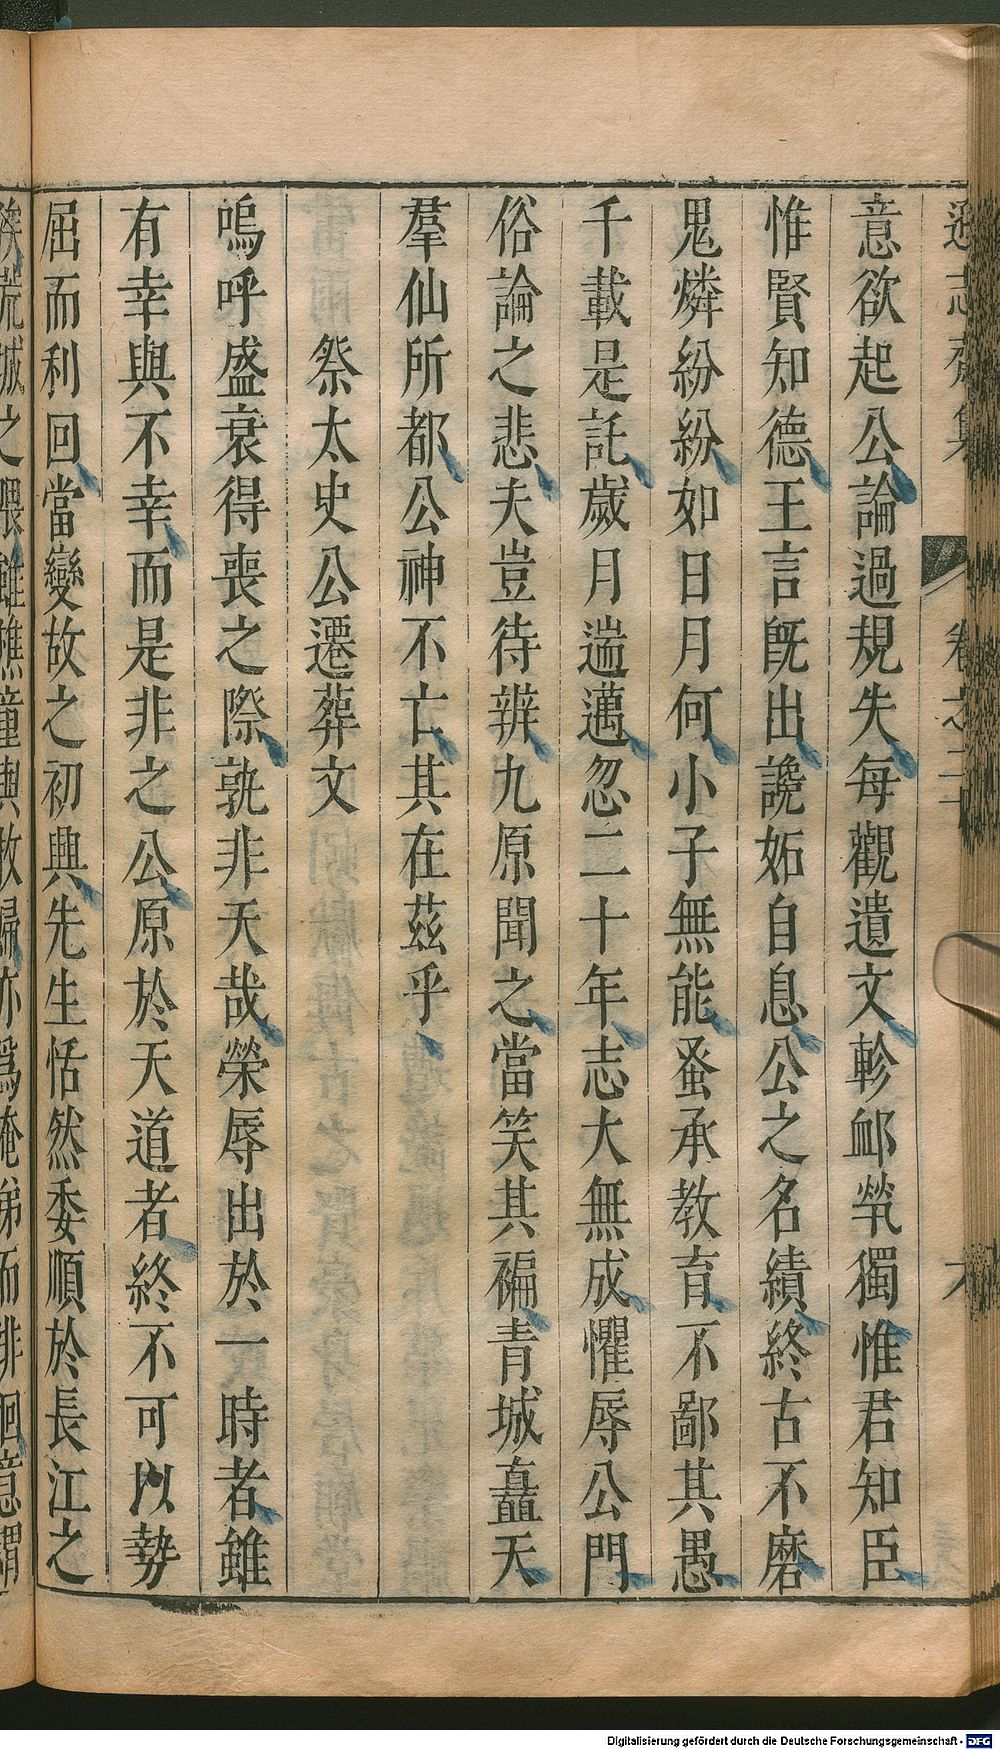 遜志齋集 卷之二十
意欲起公論過規失每觀遺文軫䘏煢獨惟君知臣
惟賢知德王言旣出讒妬自息公之名績終古不磨
鬼燐紛紛如日月何小子無能蚤承教育不鄙其愚
千載是託歲月遄邁忽二十年志大無成懼辱公門
俗論之悲夫豈待辨九原聞之當笑其褊青城矗天
羣仙所都公神不亡其在茲乎
祭太史公遷葬文
嗚呼盛衰得喪之際孰非天哉榮辱出於一時者雖
有幸與不幸而是非之公原於天道者終不可以勢
屈而利回當變故之初興先生恬然委順於長江之
Digitalisierung gefördert durch die Deutsche Forschungsgemeinschaft - DFG